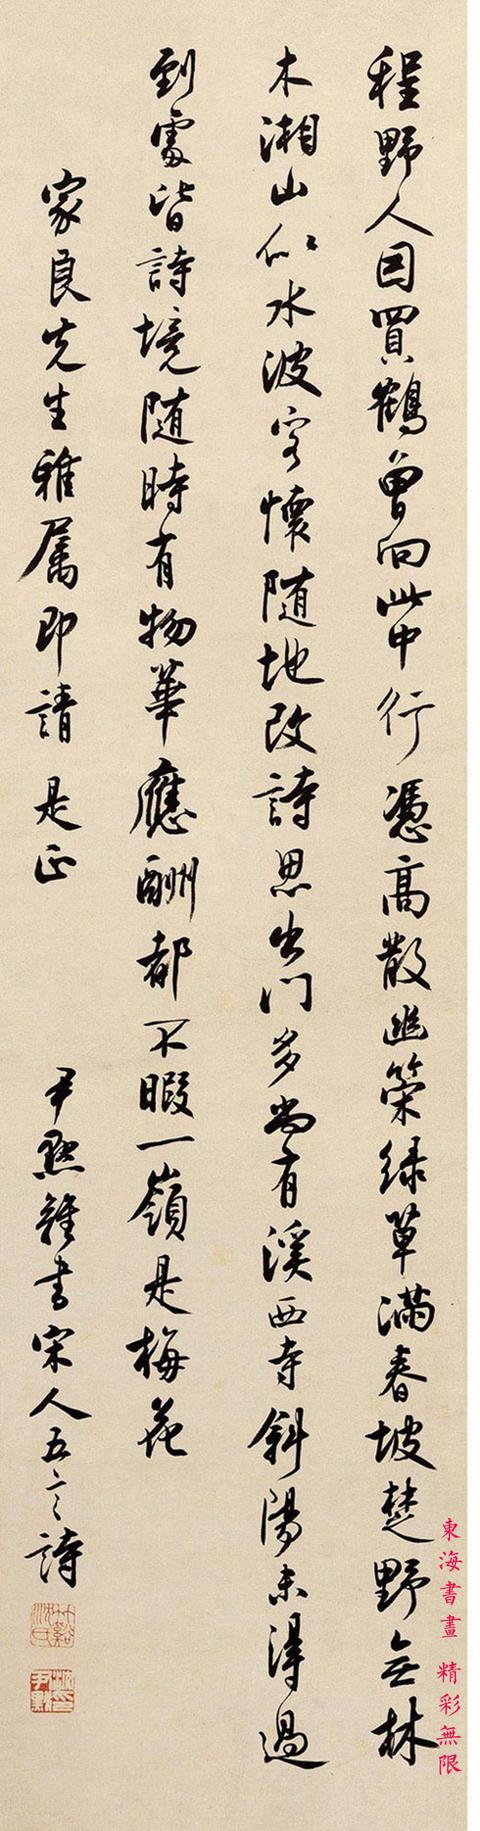 程野人因買鶴曾向此中行憑高散幽策綠草滿春坡楚野無林
木湘山似水波客懷隨地改詩思出門多尚有溪西寺斜陽未得過
到處皆詩境隨時有物華應酬都不暇一嶺是梅花
家良先生雅屬即請是正
尹默雜書宋人五言詩
竹谿沈氏
尹默
東海書畫 精彩無限